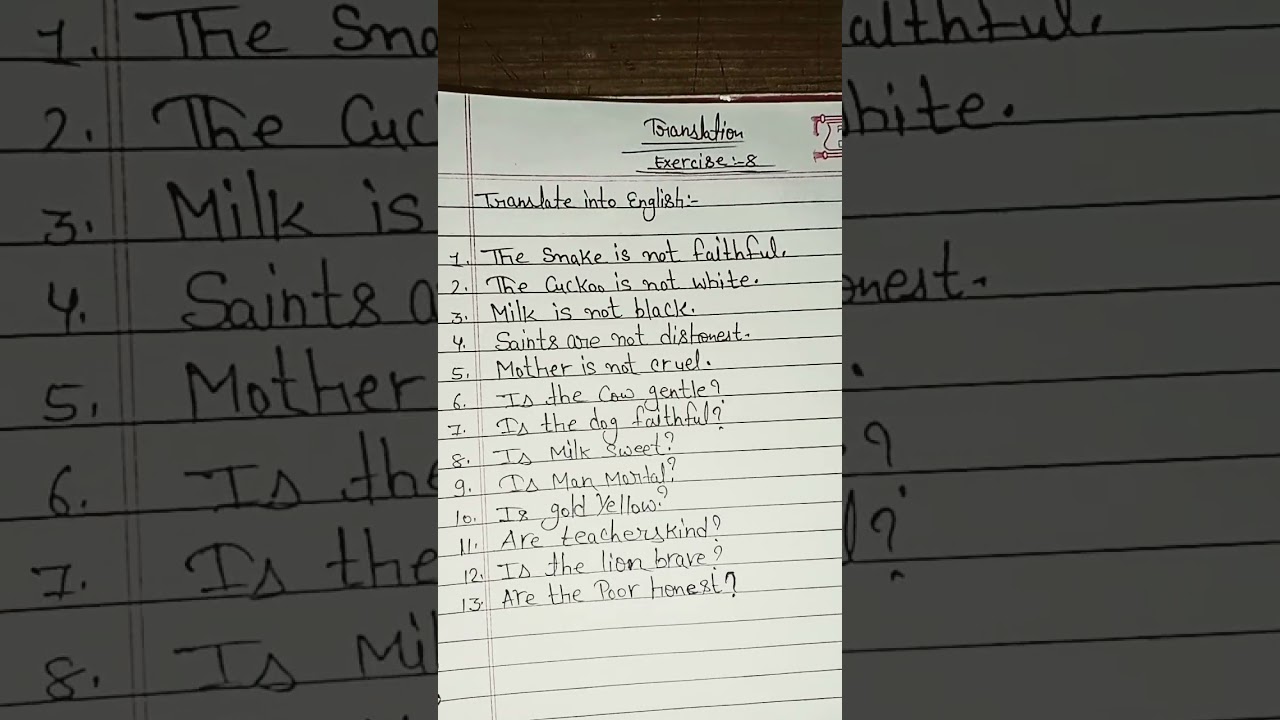 Translation
Exercise:-8
Translate into English:-
1. The Snake is not faithful.
2. The Cuckoo is not white.
3. Milk is not black.
4. Saints are not dishonest.
5. Mother is not cruel.
6. Is the Cow gentle?
7. Is the dog faithful?
8. Is Milk Sweet?
9. Is Man Mortal?
10. Is gold Yellow?
11. Are teachers kind?
12. Is the lion brave?
13. Are the Poor honest?